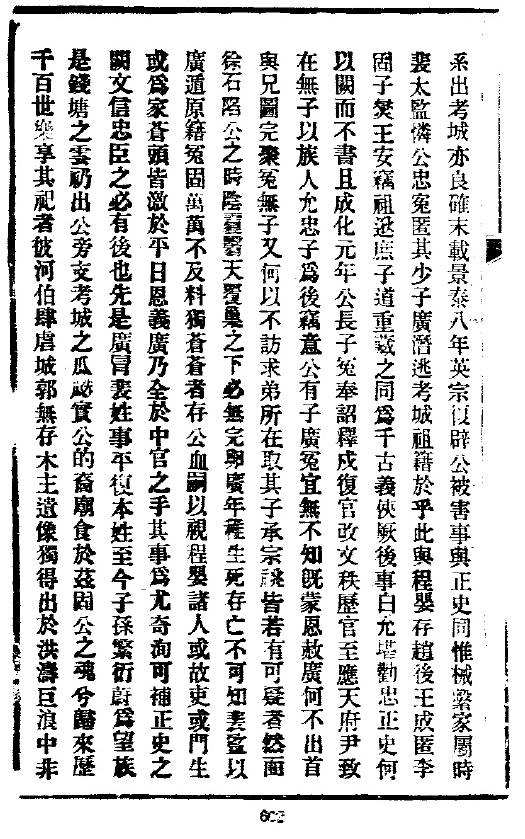 系出考城亦良確末載景泰八年英宗復辟公被害事與正史同惟械繫家屬時
裴太監憐公忠寃匿其少子廣潛逃考城祖籍於乎此與程嬰存趙後王成匿李
固子燮王安竊祖逖庶子道重藏之同為千古義俠厥後事白允堪勸忠正史何
以闕而不書且成化元年公長子冕奉詔釋戍復官改文秩歷官至應天府尹致
在無子以族人允忠子為後竊意公有子廣冕宜無不知既蒙恩赦廣何不出首
與兄圖完聚冕無子又何以不訪求弟所在取其子承宗祧皆若有可疑者然而
徐石陷公之時陰霾翳天覆巢之下必無完卵廣年穉生死存亡不可知裴監以
廣遁原籍冕固萬萬不及料獨蒼蒼者存公血嗣以視程嬰諸人或故吏或門生
或為家蒼頭皆激於平日恩義廣乃全於中官之手其事為尤奇洵可補正史之
闕文信忠臣之必有後也先是廣冒裴姓事平復本姓至今子孫繁衍蔚為望族
是錢塘之雲礽出公旁支考城之瓜瓞實公的裔廟食於茲固公之魂兮歸來歷
千百世樂享其祀者彼河伯肆虐城郭無存木主遺像獨得出於洪濤巨浪中非
602